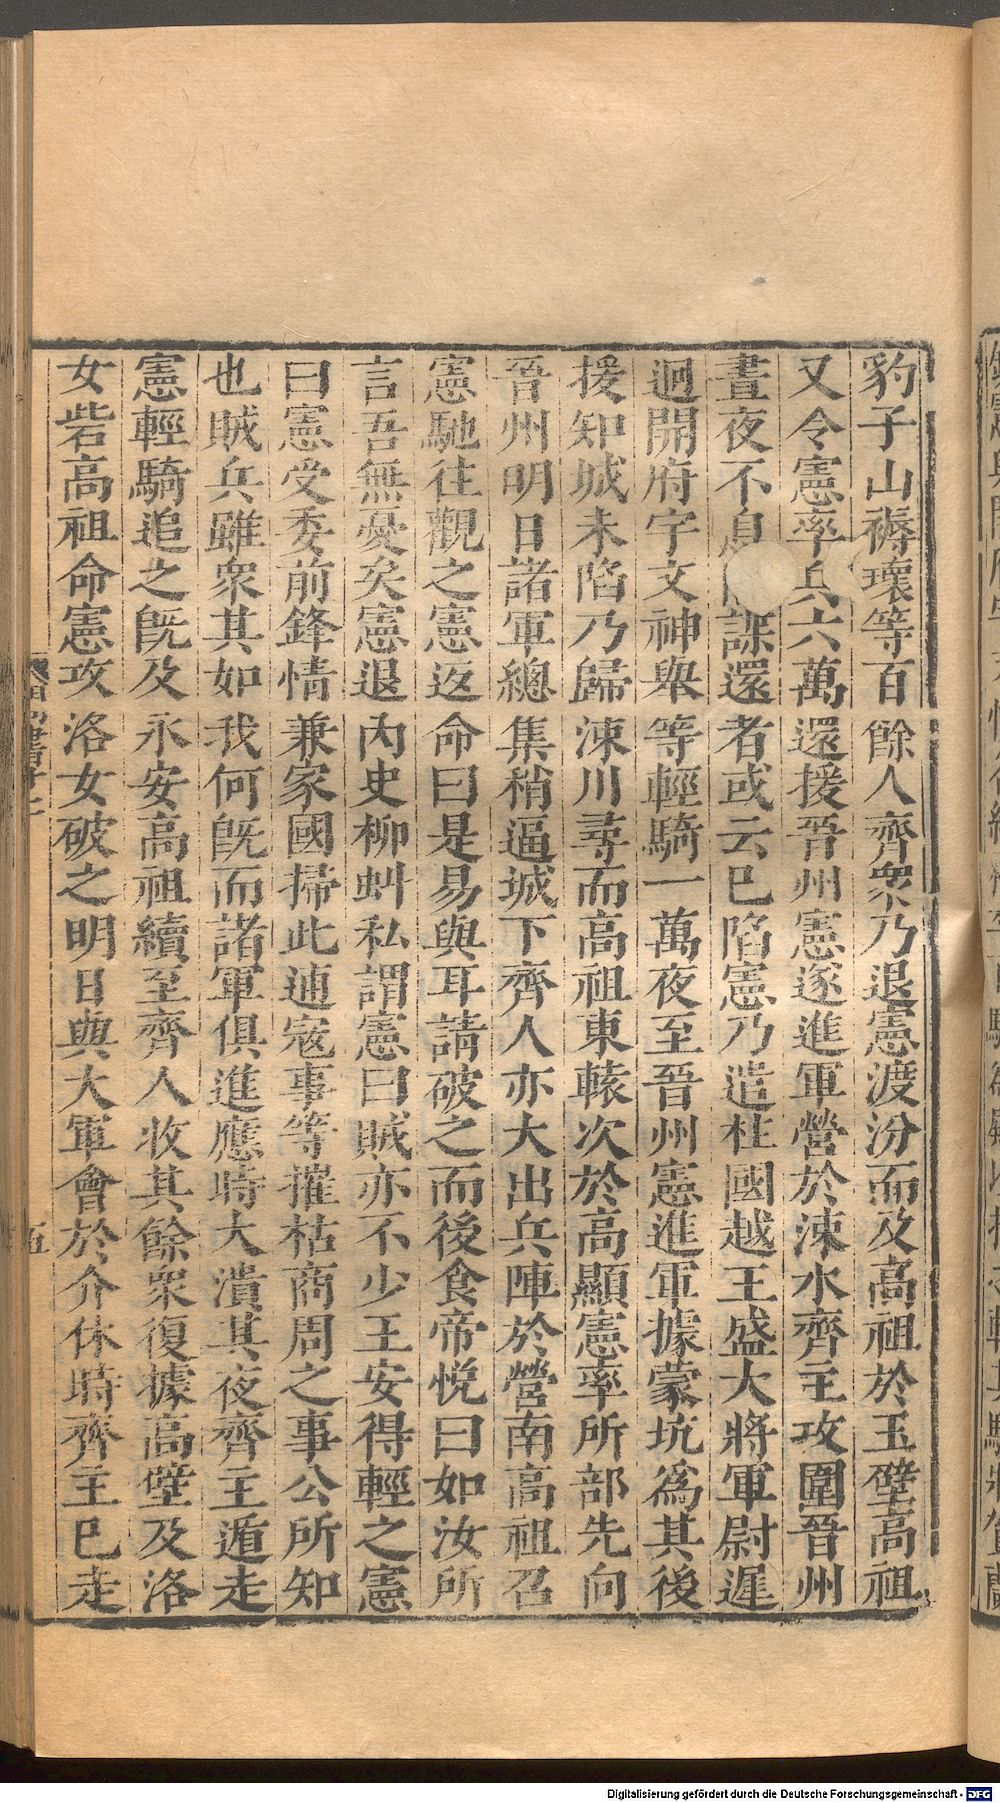 豹子山褥瓌等百餘人齊衆乃退憲渡汾而及高祖於玉壁高祖
又令憲率兵六萬還援晋州憲遂進軍營於涑水齊主攻圍晋州
晝夜不息諜還者或云已陷憲乃遣柱國越王盛大將軍尉遲
迥開府宇文神舉等輕騎一萬夜至晉州憲進軍據蒙坑爲其後
援知城未陷乃歸涑川尋而高祖東轅次於高顯憲率所部先向
晋州明日諸軍總集稍逼城下齊人亦大出兵陣於營南高祖召
憲馳往觀之憲返命曰是易與耳請破之而後食帝悅曰如汝所
言吾無憂矣憲退内史柳虯私謂憲曰賊亦不少王安得輕之憲
曰憲受委前鋒情兼家國掃此逋寇事等摧枯商周之事公所知
也賊兵雖衆其如我何旣而諸軍俱進應時大潰其夜齊主遁走
憲輕騎追之旣及永安高祖續至齊人收其餘衆復據高壁及洛
女砦高祖命憲攻洛女破之明日與大軍會於介休時齊主已走
五
Digitalisierung gefördert durch die Deutsche Forschungsgemeinschaft - DFG